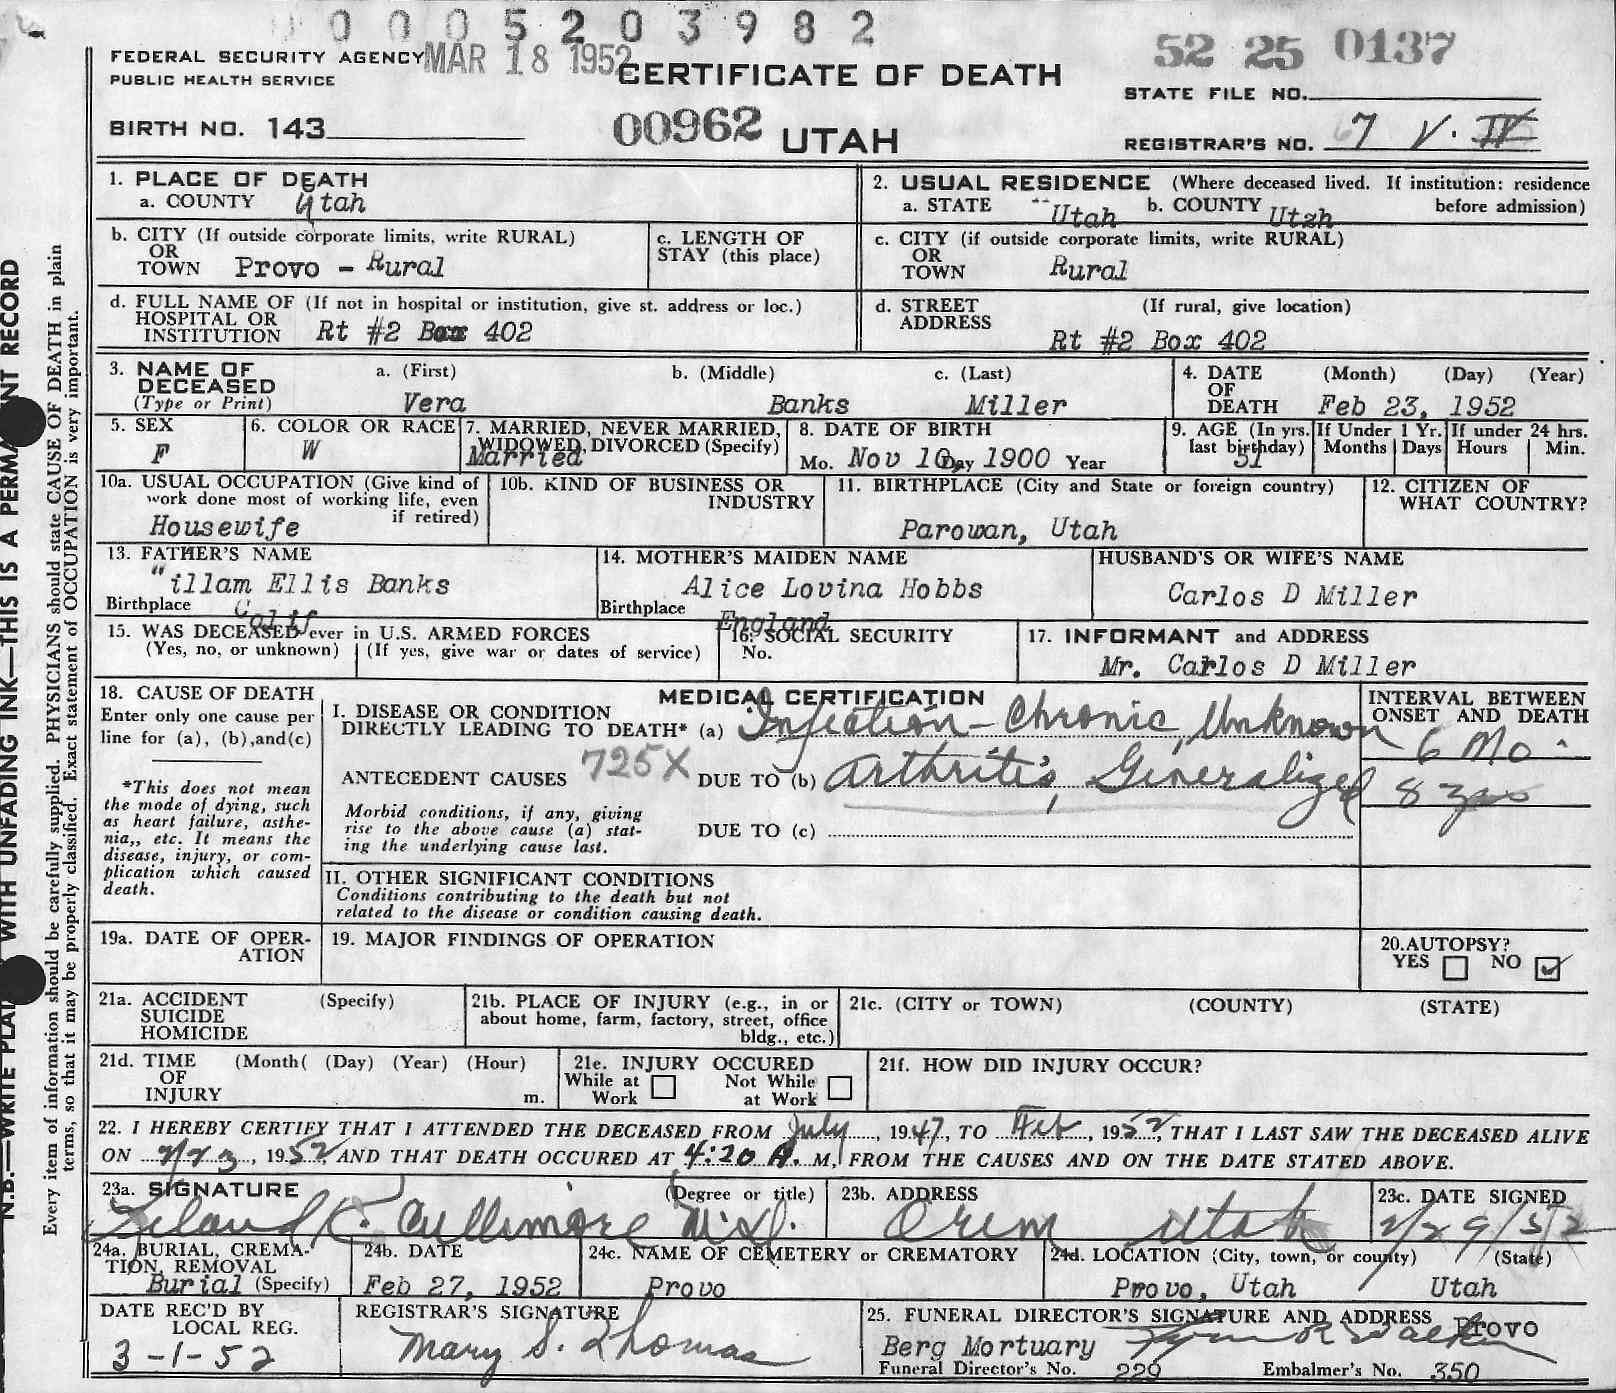 0005203982
FEDERAL SECURITY AGENCY MAR 18 1952 CERTIFICATE OF DEATH 52 25 0137
PUBLIC HEALTH SERVICE STATE FILE NO.
BIRTH NO. 143 00962 UTAH REGISTRAR'S NO. 67 V. IV
1. PLACE OF DEATH
a. COUNTY Utah
2. USUAL RESIDENCE (Where deceased lived. If institution: residence before admission)
a. STATE Utah b. COUNTY Utah
b. CITY (If outside corporate limits, write RURAL)
OR
TOWN Provo - Rural
c. LENGTH OF
STAY (this place)
c. CITY (if outside corporate limits, write RURAL)
OR
TOWN Rural
d. FULL NAME OF (If not in hospital or institution, give st. address or loc.)
HOSPITAL OR
INSTITUTION Rt #2 Box 402
d. STREET (If rural, give location)
ADDRESS
Rt #2 Box 402
3. NAME OF a. (First) b. (Middle) c. (Last)
DECEASED
(Type or Print) Vera Banks Miller
4. DATE (Month) (Day) (Year)
OF
DEATH Feb 23, 1952
5. SEX
F
6. COLOR OR RACE
W
7. MARRIED, NEVER MARRIED,
WIDOWED, DIVORCED (Specify)
Married
8. DATE OF BIRTH
Mo. Nov 10, Day 1900 Year
9. AGE (In yrs.
last birthday)
51
If Under 1 Yr.
Months Days
If under 24 hrs.
Hours Min.
10a. USUAL OCCUPATION (Give kind of
work done most of working life, even
if retired)
Housewife
10b. KIND OF BUSINESS OR
INDUSTRY
11. BIRTHPLACE (City and State or foreign country)
Parowan, Utah
12. CITIZEN OF
WHAT COUNTRY?
13. FATHER'S NAME
"illam Ellis Banks
Birthplace Calif
14. MOTHER'S MAIDEN NAME
Alice Lovina Hobbs
Birthplace England
HUSBAND'S OR WIFE'S NAME
Carlos D Miller
15. WAS DECEASED ever in U.S. ARMED FORCES
(Yes, no, or unknown) (If yes, give war or dates of service)
16. SOCIAL SECURITY
No.
17. INFORMANT and ADDRESS
Mr. Carlos D Miller
18. CAUSE OF DEATH
Enter only one cause per
line for (a), (b), and (c)
*This does not mean
the mode of dying, such
as heart failure, asthe-
nia,, etc. It means the
disease, injury, or com-
plication which caused
death.
MEDICAL CERTIFICATION
I. DISEASE OR CONDITION
DIRECTLY LEADING TO DEATH* (a) Infection - Chronic, Unknown
ANTECEDENT CAUSES 725X DUE TO (b) Arthritis, Generalized
Morbid conditions, if any, giving
rise to the above cause (a) stat-
ing the underlying cause last.
DUE TO (c)
INTERVAL BETWEEN
ONSET AND DEATH
6 Mo.
8 yrs
II. OTHER SIGNIFICANT CONDITIONS
Conditions contributing to the death but not
related to the disease or condition causing death.
19a. DATE OF OPER-
ATION
19. MAJOR FINDINGS OF OPERATION
20. AUTOPSY?
YES NO
21a. ACCIDENT (Specify)
SUICIDE
HOMICIDE
21b. PLACE OF INJURY (e.g., in or
about home, farm, factory, street, office
bldg., etc.)
21c. (CITY or TOWN) (COUNTY) (STATE)
21d. TIME (Month( (Day) (Year) (Hour)
OF
INJURY m.
21e. INJURY OCCURED
While at Work Not While at Work
21f. HOW DID INJURY OCCUR?
22. I HEREBY CERTIFY THAT I ATTENDED THE DECEASED FROM July, 1947, TO Feb, 1952, THAT I LAST SAW THE DECEASED ALIVE
ON 2/23, 1952, AND THAT DEATH OCCURED AT 4:20 A. M, FROM THE CAUSES AND ON THE DATE STATED ABOVE.
23a. SIGNATURE (Degree or title)
Leland K. Cullimore M.D.
23b. ADDRESS
Orem Utah
23c. DATE SIGNED
2/29/52
24a. BURIAL, CREMA-
TION, REMOVAL
Burial (Specify)
24b. DATE
Feb 27, 1952
24c. NAME OF CEMETERY or CREMATORY
Provo
24d. LOCATION (City, town, or county) (State)
Provo, Utah Utah
DATE REC'D BY
LOCAL REG.
3-1-52
REGISTRAR'S SIGNATURE
Mary S. Thomas
25. FUNERAL DIRECTOR'S SIGNATURE AND ADDRESS Provo
Berg Mortuary
Funeral Director's No. 229 Embalmer's No. 350
N.B.—WRITE PLAI WITH UNFADING INK—THIS IS A PERMA NT RECORD
Every item of information should be carefully supplied. PHYSICIANS should state CAUSE OF DEATH in plain
terms, so that it may be properly classified. Exact statement of OCCUPATION is very important.